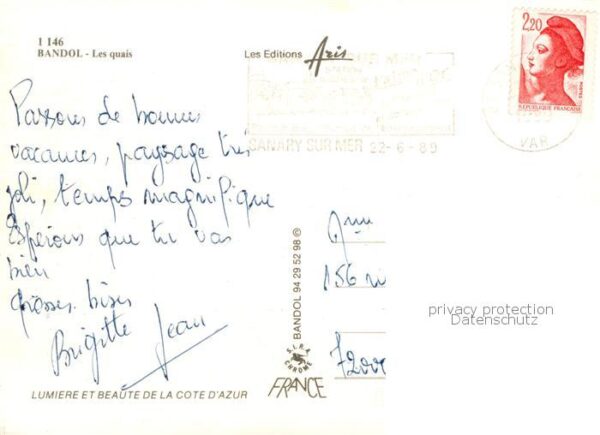 1 146
BANDOL - Les quais
Les Editions Aris
2,20
POSTES
REPUBLIQUE FRANÇAISE
SANARY SUR MER 22-6-89
VAR
Passons de bonnes
vacances, paysage très
joli, temps magnifique
Espérons que tu vas
bien
grosses bises
Brigitte Jean
Mme
156
72000
BANDOL 94 29 52 98 ©
S.L.R.A.
CHROME
FRANCE
LUMIERE ET BEAUTE DE LA COTE D'AZUR
privacy protection
Datenschutz